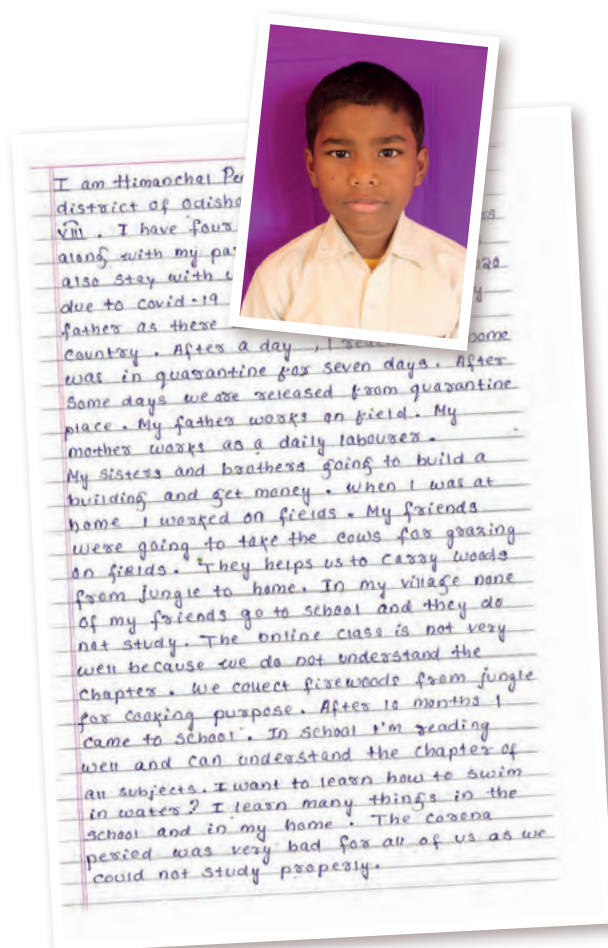 I am Himanchal
district of odisha
VIII. I have four
along with my
also stay with
due to covid-19
father as there
country. After a day, I
was in quarantine for seven days. After
some days we are released from quarantine
place. My father works on field. My
mother works as a daily labourer.
My sisters and brothers going to build a
building and get money. when I was at
home I worked on fields. My friends
were going to take the cows for grazing
on fields. They helps us to carry woods
from jungle to home. In my village none
of my friends go to school and they do
not study. The online class is not very
well because we do not understand the
chapter. We collect firewoods from jungle
for cooking purpose. After 10 months I
came to school. In school I'm reading
well and can understand the chapter of
all subjects. I want to learn how to swim
in water? I learn many things in the
school and in my home. The corona
period was very bad for all of us as we
could not study properly.